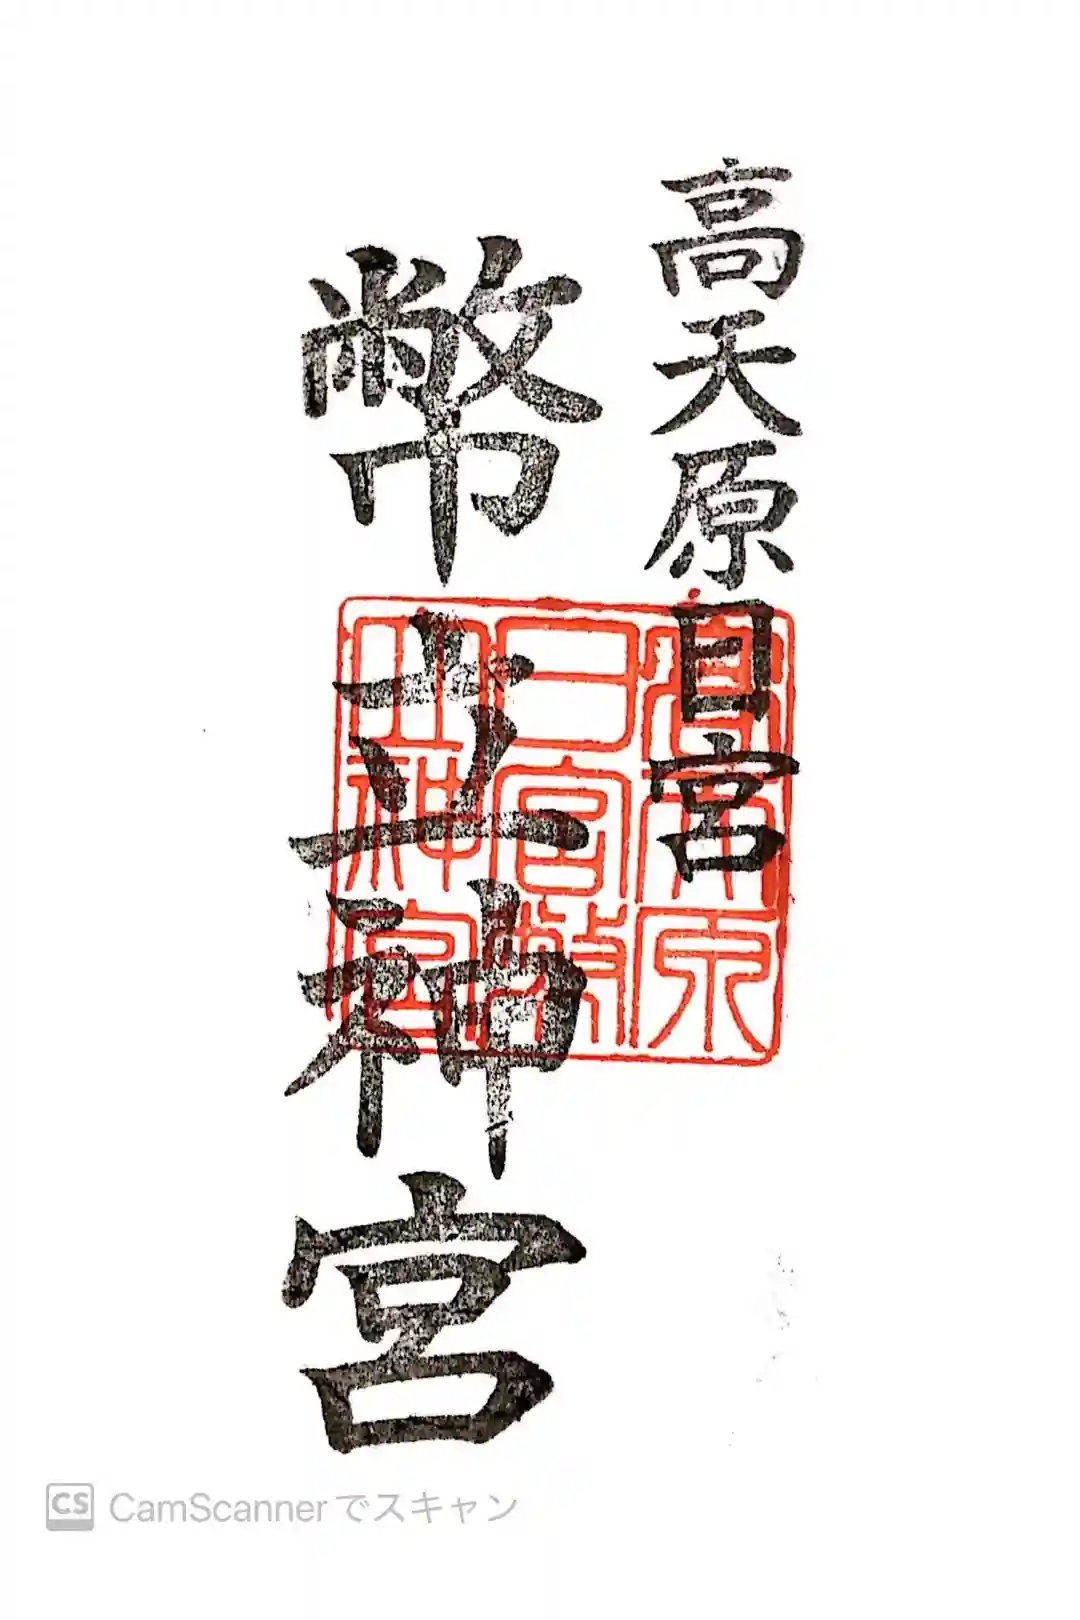 高天原日宮
幣立神宮
高天原
日宮幣
立神宮
CS CamScannerでスキャン